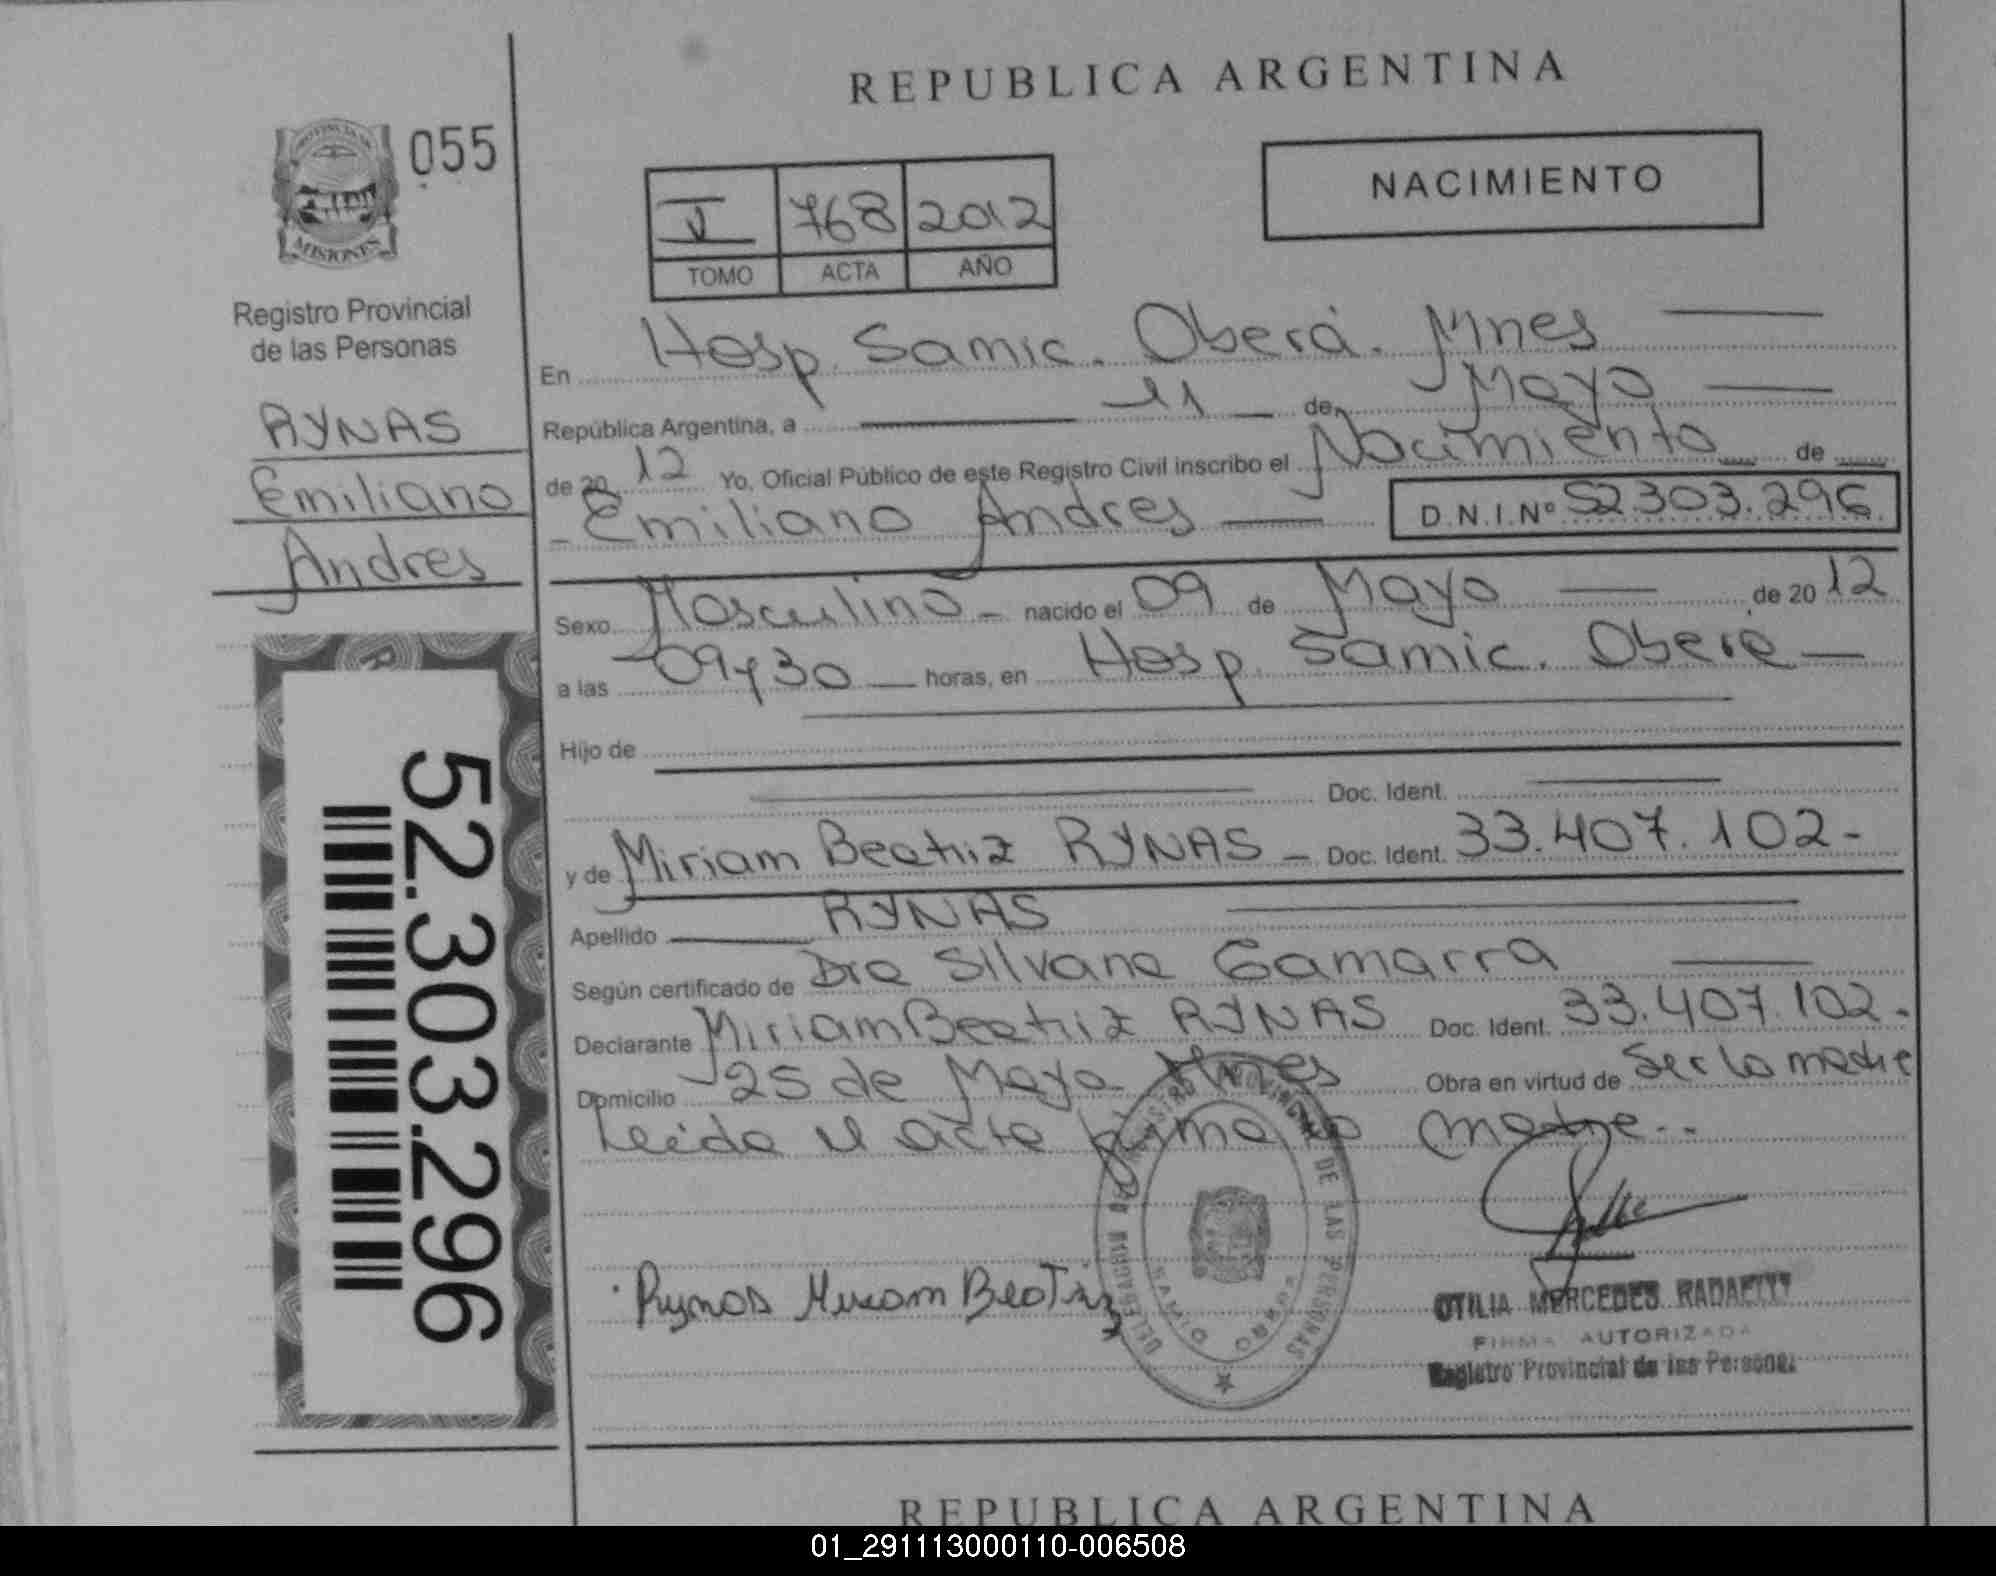 REPUBLICA ARGENTINA
055
NACIMIENTO
V 768 2012
TOMO ACTA AÑO
MISIONES
Registro Provincial
de las Personas
RYNAS
Emiliano
Andres
52.303.296
En Hosp. Samic. Oberá. Mnes
República Argentina, a 11 de Mayo
de 2012 Yo, Oficial Público de este Registro Civil inscribo el Nacimiento de
Emiliano Andres D.N.I.Nº 52.303.296
Sexo Masculino nacido el 09 de Mayo de 2012
a las 09y30 horas, en Hosp. Samic. Oberá
Hijo de
Doc. Ident.
y de Miriam Beatriz RYNAS Doc. Ident. 33.407.102-
Apellido RYNAS
Según certificado de Dra Silvana Gamarra
Declarante Miriam Beatriz RYNAS Doc. Ident. 33.407.102-
Domicilio 25 de Mayo Mnes Obra en virtud de Ser la madre
Leida el acta firma la madre..
Rynas Miriam Beatriz
REGISTRO PROVINCIAL DE LAS PERSONAS
OTILIA MERCEDES
FIRMA AUTORIZADA
Registro Provincial de las Personas
REPUBLICA ARGENTINA
01_291113000110-006508